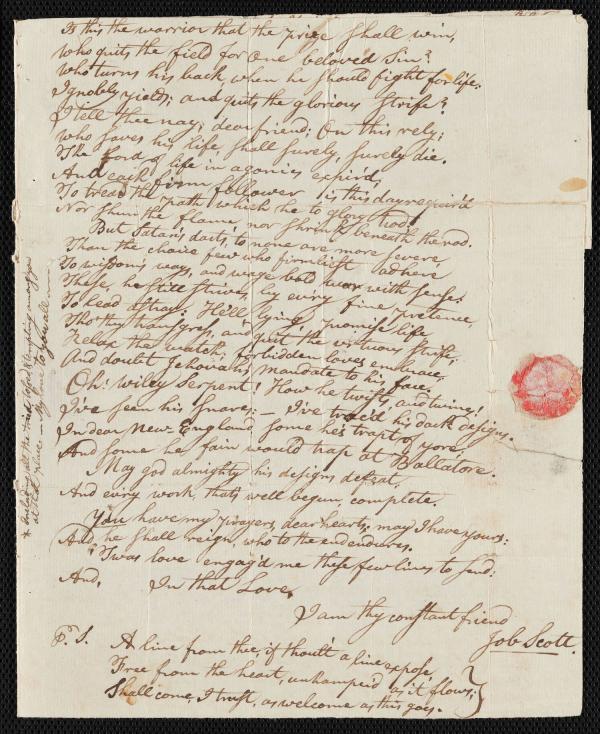 Is this the warrior that the prize shall win,
Who quits the field for one beloved Sin?
Who turns his back when he should fight for life;
Ignobly yields; and quits the glorious Strife?
I tell thee nay; dear friend; On this rely;
Who saves his life, shall surely, surely die.
The Lord of life in agonies expir'd,
And each firm follower is this day requir'd
To tread the path which he to glory trod,
Nor shun the flame, nor shrink beneath the rod.
But Satan's darts, to none are more severe
Than the choice few who firmliest adhere
To wisdom's ways, and wage bold war with sense:
These, he still strives, by every fine pretence,
To lead astray: He'll lying, promise life
Tho' they transgress, and quit the virtuous strife;
Relax the watch, forbidden loves embrace,
And doubt Jehovah's mandate to his face.
Oh! wiley Serpent! How he twists, and twines!
I've seen his snares;— I've trac'd his dark designs.
In dear New England some he's trapt of yore,
And some he fain would trap at Ballatore.
May god almighty his designs defeat,
And every work, that's well begun, complete.
You have my prayers, dear hearts; may I have yours:
And, he shall reign, who to the end endures.
'Twas love engag'd me these few lines to send:
And, In that Love,
I am thy constant friend
Job Scott.
P.S. A line from thee, if thou'lt a line expose,
Free from the heart, unhamper'd as it flows;
Shall come, I trust, as welcome as this goes.
* including all the
at that place — My love to you all —